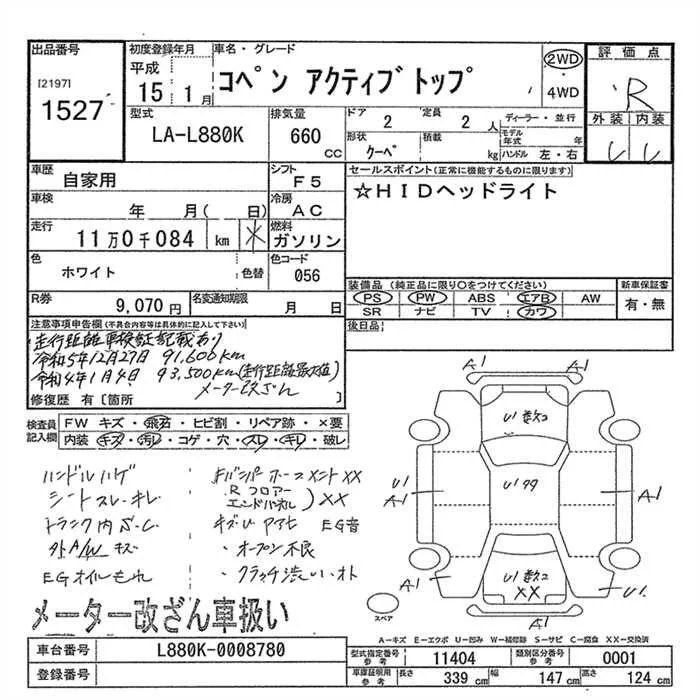 出品番号
[2197]
1527
初度登録年月
平成
15 1月
車名・グレード
コペン アクティブトップ
2WD
・
4WD
評価点
R
外装 内装
型式
LA-L880K
排気量
660
CC
ドア
2
定員
2 人
形状
クーペ
積載
kg
ディーラー・並行
モデル年式 年
ハンドル 左・右
車歴
自家用
シフト
F5
車検
年 月( 日)
冷房
AC
走行
11万0千084 km ✳
燃料
ガソリン
色
ホワイト
色替
色コード
056
R券
9,070円
名変通知期限
月 日
セールスポイント(正常に機能するものに限ります)
☆HIDヘッドライト
装備品(純正品に限り○をつけてください)
PS PW ABS エアB AW
SR ナビ TV カワ
新車保証書
有・無
後日品
注意事項申告欄(不具合内容等は具体的に記入して下さい)
走行距離車検証記載あり
令和5年12月27日 91,600km
令和4年1月4日 93,500km(走行距離最大値)
メーター改ざん
修復歴 有〔箇所 〕
検査員記入欄
FW キズ・飛石・ヒビ割・リペア跡・×要
内装 キズ・汚レ・コゲ・穴・スレ・キレ・破レ
ハンドルハゲ
シートスレ・キレ
トランク内S.C
外A/Wキズ
EGオイルもれ
XX
R フロアー
エンドパネル)XX
EG音
・オープン不良
・クラッチ渋い・オト
A1
U1 数コ
A1
U1
A1
U1 99
A1
U1 数コ
XX
A1
U1
A1
スペア
A-キズ E-エクボ U-凹み W-補修跡 S-サビ C-腐食 XX-交換済
メーター改ざん車扱い
車台番号
L880K-0008780
登録番号
型式指定番号
参考
11404
類別区分番号
参考
0001
車庫証明用
参考
長さ 339 cm
幅 147 cm
高さ 124 cm